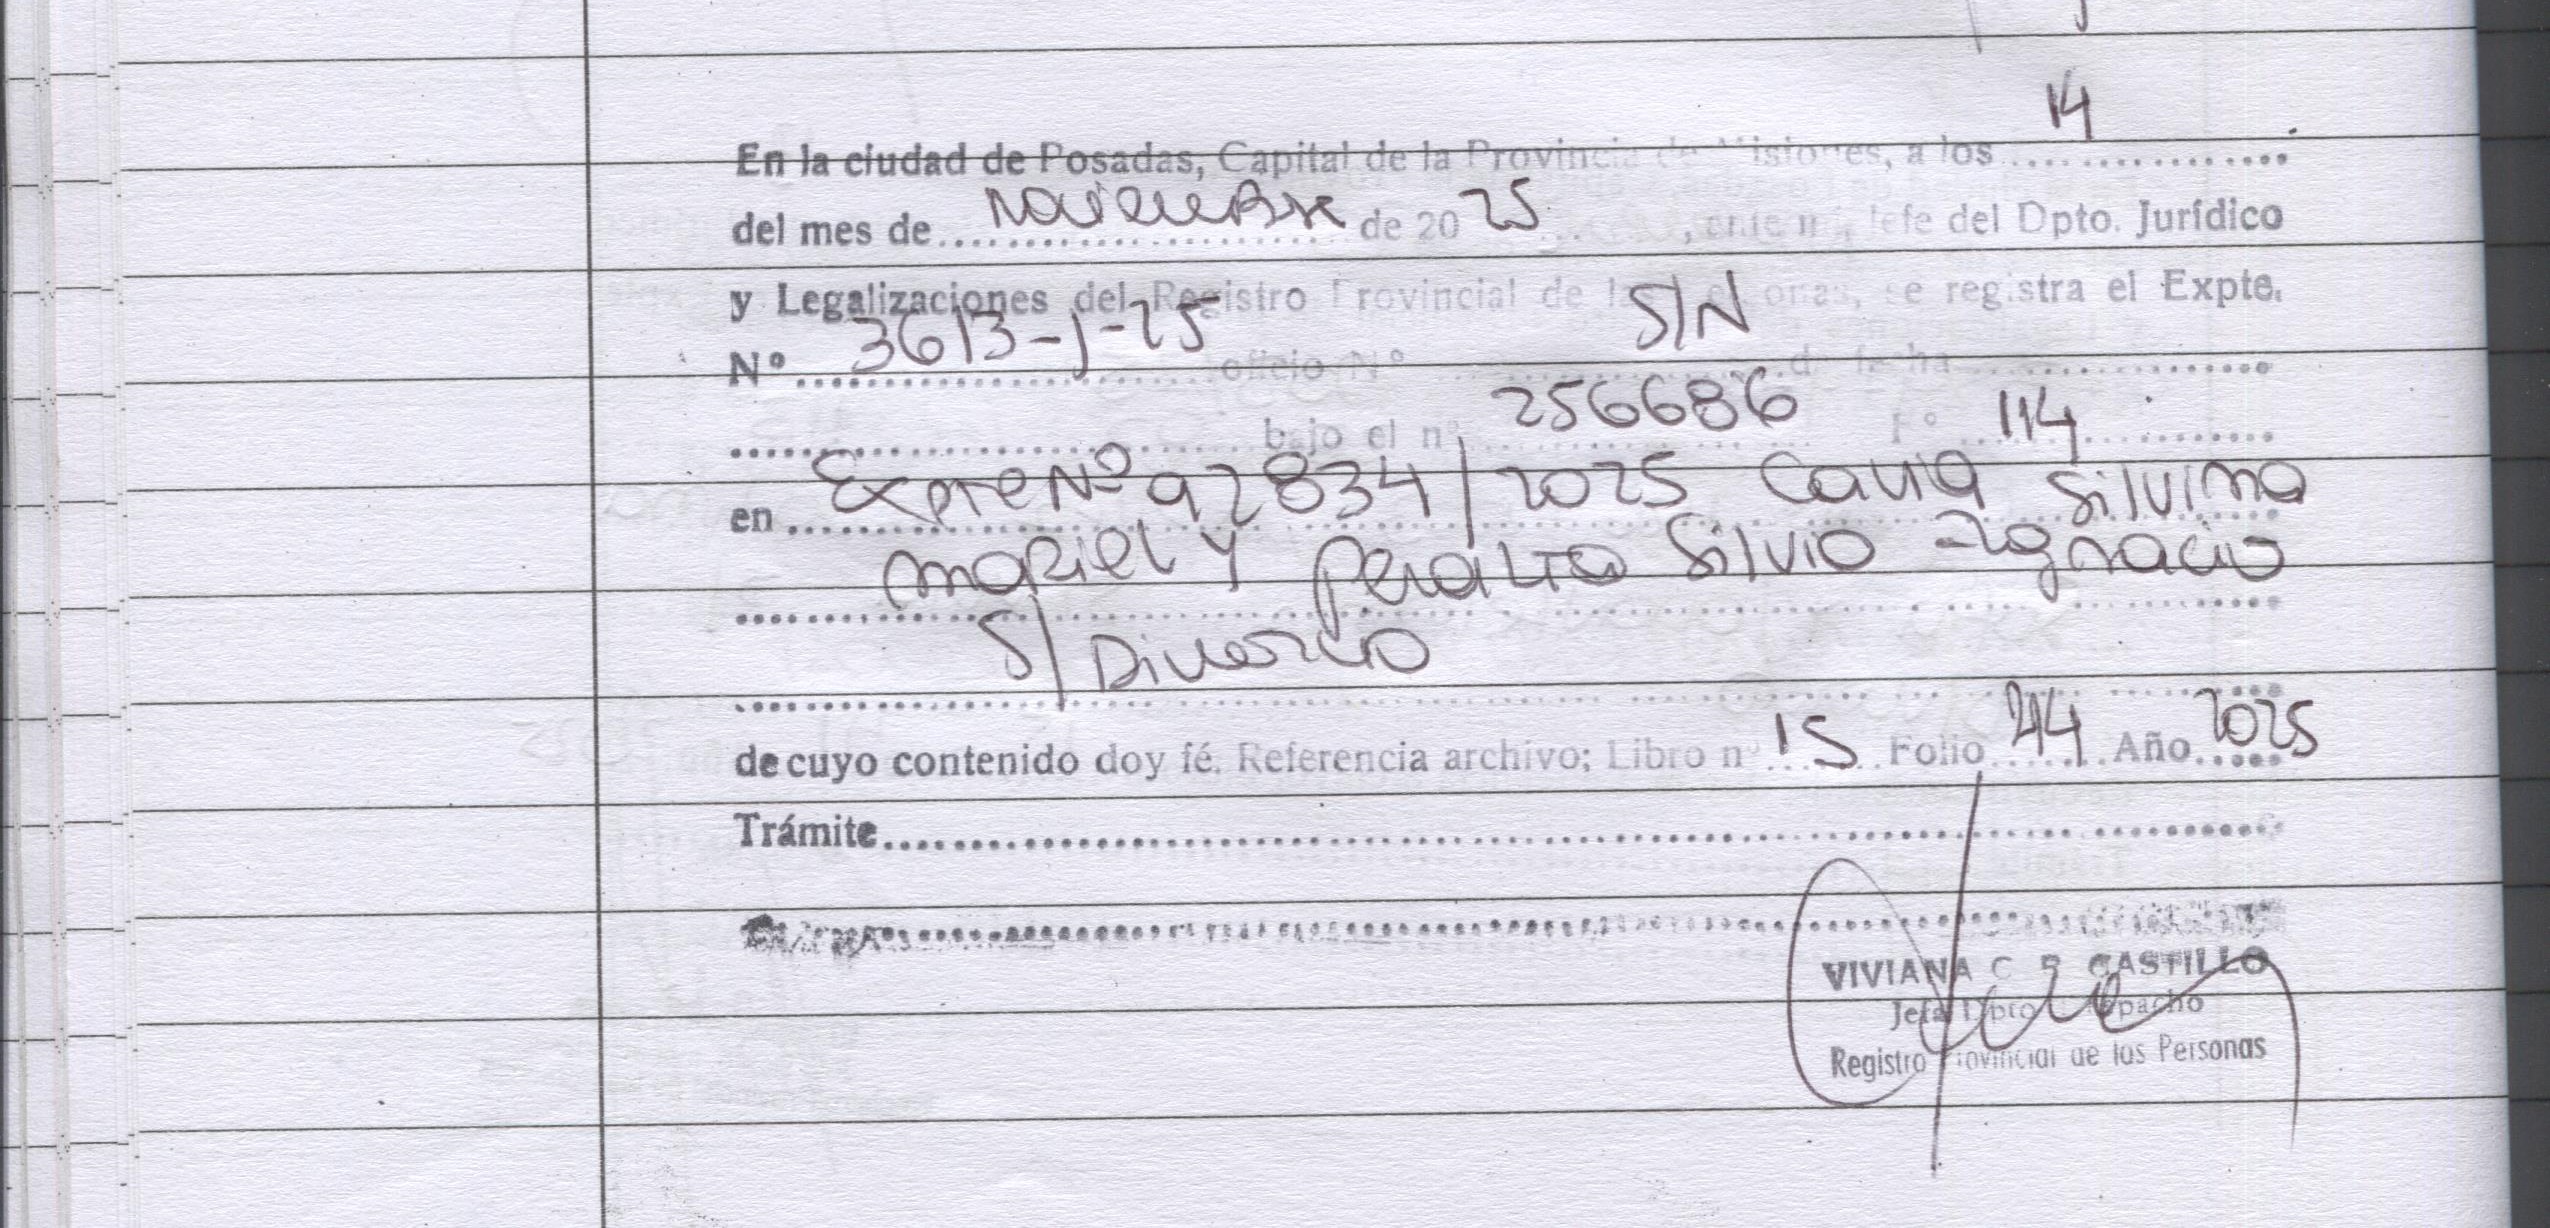 14
En la ciudad de Posadas, Capital de la Provincia de Misiones, a los ................
del mes de Noviembre de 20 25 , ante mi, Jefe del Dpto. Jurídico
y Legalizaciones del Registro Provincial de las Personas, se registra el Expte.
Nº 3613-J-25 oficio Nº S/N de fecha
bajo el nº 256686 Fº 114
en Expte Nº 92834/2025 Cavia Silvina
Mariel y Peralta Silvio Ignacio
S/ Divorcio
de cuyo contenido doy fé. Referencia archivo; Libro nº 15 Folio 44 Año 2025
Trámite
VIVIANA C. CASTILLO
Jefa Dpto Despacho
Registro Provincial de las Personas